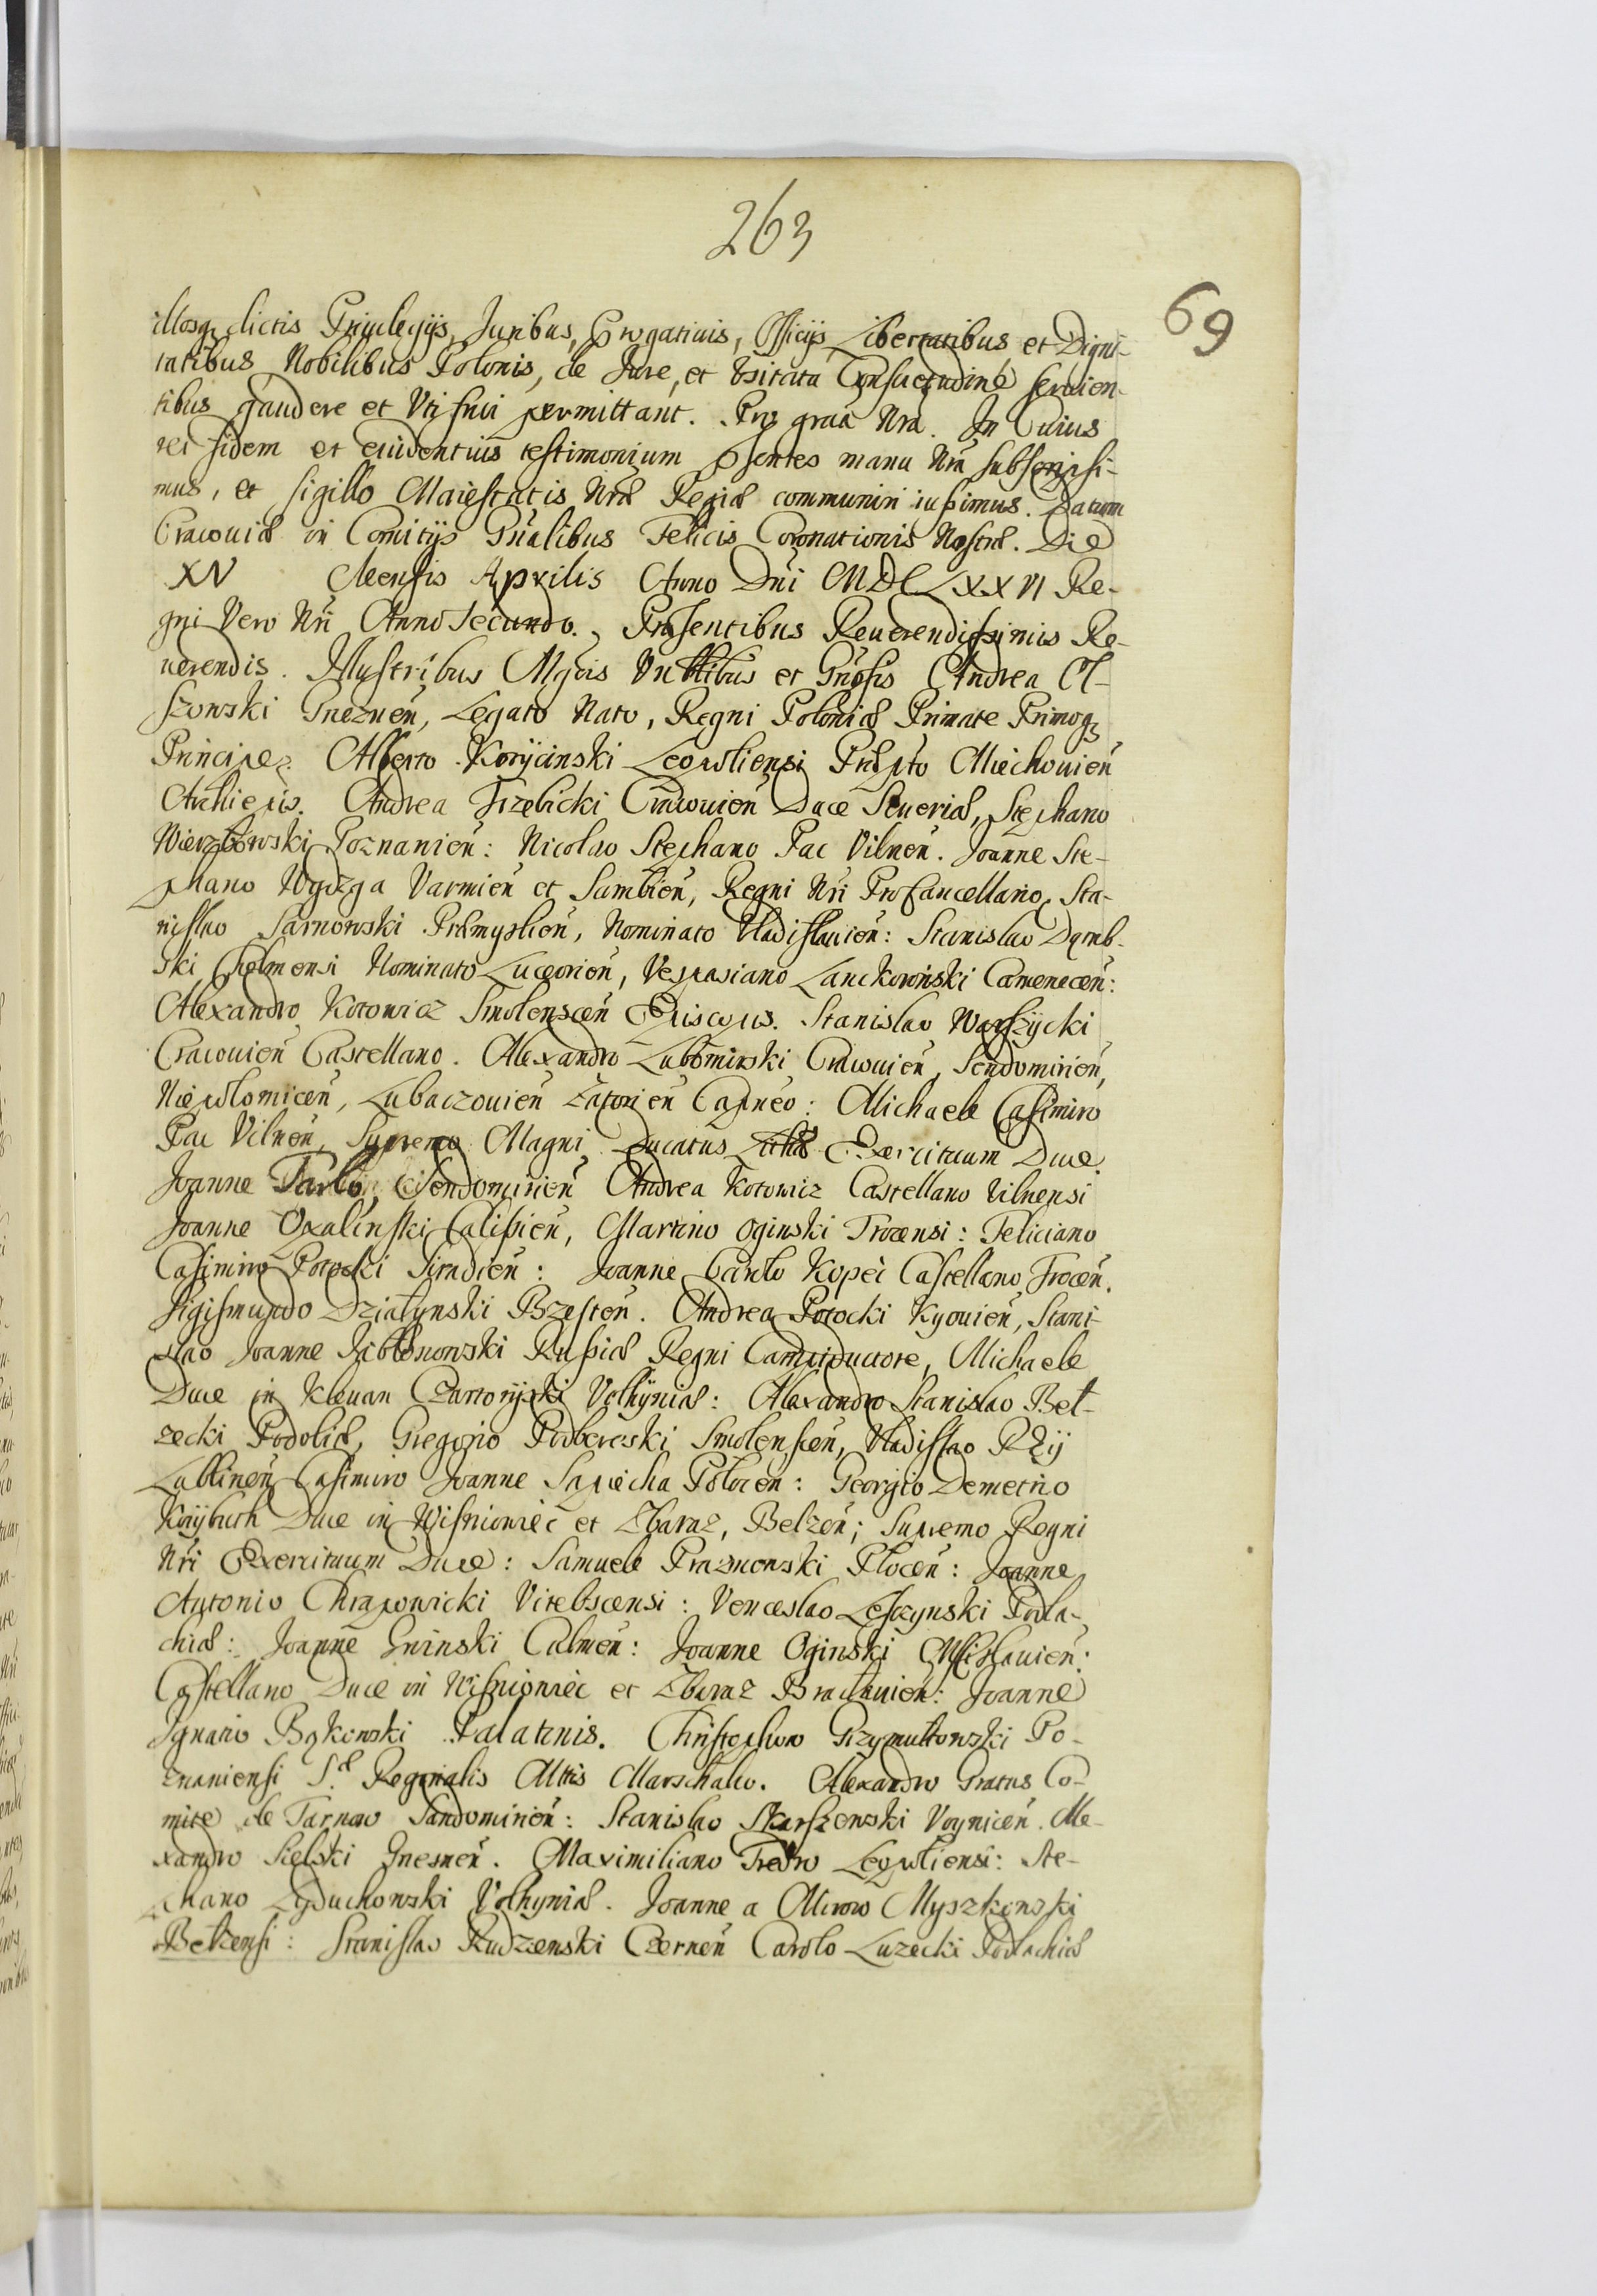 263
69
illosq dictis Priuilegijs, Juribus, Prrogatiuis, Officijs Libertatibus et Digni-
tatibus Nobilibus Polonis, de Jure, et Vsitata Consuetudine seruien-
tibus gaudere et Vti frui permittant. Pro graa Nra. In Cuius
rei fidem et euidentius testimonium psentes manu Nra subscripsi-
mus, et sigillo Maiestatis Nrae Regiae communiri iussimus. Datum
Cracouiae in Comitijs Gñalibus Felicis Coronationis Nostrae. Die
XV Mensis Aprilis Anno Dñi MDCLXXVI Re-
gni Vero Nri Anno Secundo. Praesentibus Reuerendissimis Re-
uerendis. Illustribus Mgcis Vñblibus et Gñosis Andrea Ol-
szowski Gneznen, Legato Nato, Regni Poloniae Primate Primoq
Principe. Alberto Koryicinski Leopoliensi Praepto Miechouien
Archiepis. Andrea Trzebicki Cracouien Duce Seueriae, Stephano
Wierzbowski Poznanien: Nicolao Stephano Pac Vilnen. Joanne Ste-
phano Wydzga Varmien et Sambien, Regni Nri ProCancellario, Sta-
nislao Sarnowski Praemyslien, Nominato Vladislauien: Stanislao Dąmb-
ski Chelmensi Nominato Luceorien, Vespasiano Lanckoroński Camenecen:
Alexandro Kotowicz Smolenscen Episcopis. Stanislao Warszycki
Cracouien Castellano. Alexandro Lubomirski Cracouien, Sendomirien,
Niepolomicen, Lubaczouien Zatorien Capneo: Michaele Casimiro
Pac Vilnen, Supremo Magni Ducatus Lithae Exercituum Duce.
Joanne Tarlo, Sendomirien Andrea Kotowicz Castellano Vilnensi
Joanne Opalinski Calissien, Martino Oginski Trocensi: Feliciano
Casimiro Potocki Siradien: Joanne Carolo Kopeć Castellano Trocen.
Sigismundo Działynski Brzesten. Andrea Potocki Kyouien, Stani-
slao Joanne Jabłonowski Russiae Regni Campiductore, Michaele
Duce in Klewan Czartoryiski Volhyniae: Alexandro Stanislao Beł-
zecki Podoliae, Gregorio Podbereski Smolenscen, Vladislao Rzij
Lublinen Casimiro Joanne Sapiecha Polocen: Georgio Demetrio
Koryibuth Duce in Wisniowiec et Zbaraz, Belzen; Supremo Regni
Nri Exercituum Duce: Samuele Prazmowski Plocen: Joanne
Antonio Chrapowicki Vitebscensi: Venceslao Leszczynski Podla-
chiae: Joanne Gninski Culmen: Joanne Oginski Mscislauien:
Castellano Duce in Wisniowiec et Zbaraz Braclauien: Joanne
Ignatio Bąkowski Palatinis. Christophoro Grzymułtowski Po-
znaniensi S. Reginalis Mttis Marschalco. Alexandro Gratus Co-
mite de Tarnow Sandomirien: Stanislao Skarszewski Voynicen. Ale-
xandro Sielski Gnesnen. Maximiliano Fredro Leopoliensi: Ste-
phano Leduchowski Volhyniae. Joanne a Mirow Myszkowski
Belzensi: Stanislao Rudzienski Czernen Carolo Luzecki Podlachiae